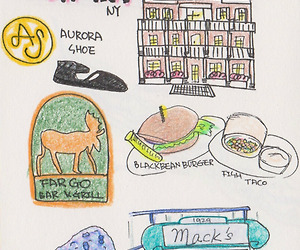 NY
AS
AURORA
SHOE
FARGO
BAR & GRILL
BLACKBEAN BURGER
FISH
TACO
1929
Mack's